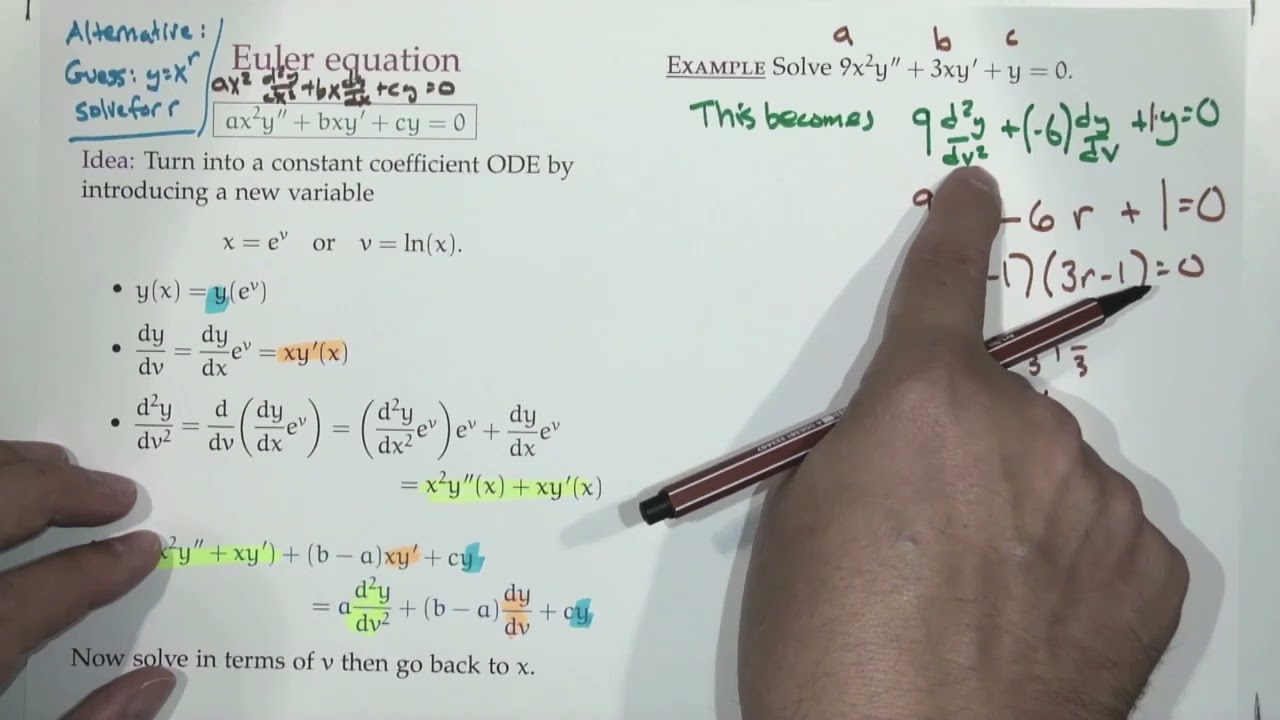 Alternative:
Guess: y=x^r
solve for r
Euler equation
ax² d²y/dx² + bx dy/dx + cy = 0
ax²y″ + bxy′ + cy = 0
Idea: Turn into a constant coefficient ODE by
introducing a new variable
x = e^v or v = ln(x).
• y(x) = y(e^v)
• dy/dv = dy/dx e^v = xy′(x)
• d²y/dv² = d/dv (dy/dx e^v) = (d²y/dx² e^v) e^v + dy/dx e^v
= x²y″(x) + xy′(x)
x²y″ + xy′) + (b − a)xy′ + cy
= a d²y/dv² + (b − a) dy/dv + cy
Now solve in terms of v then go back to x.
a b c
EXAMPLE Solve 9x²y″ + 3xy′ + y = 0.
This becomes 9 d²y/dv² + (-6) dy/dv + 1·y = 0
9 - 6 r + 1 = 0
-1) (3r-1) = 0
3 , 1/3